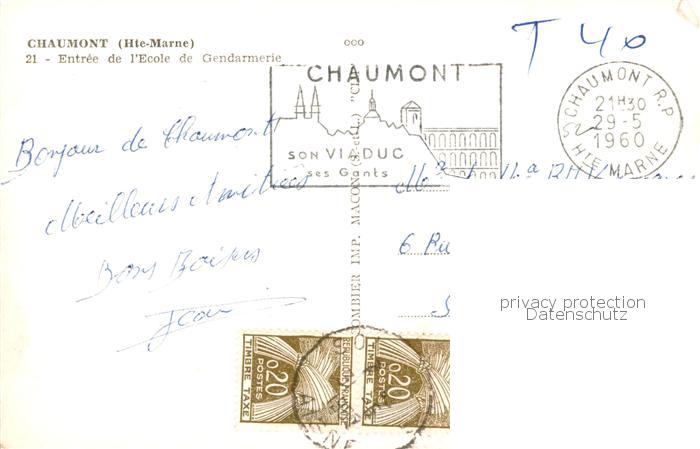 CHAUMONT (Hte-Marne)
21 - Entrée de l'Ecole de Gendarmerie
T 40
CHAUMONT
SON VIADUC
ses Gants
CHAUMONT R.P
21H30
29-5
1960
HTE MARNE
Bonjour de Chaumont
Meilleures Amitiés
Bons Baisers
Jean
COMBIER IMP. MACON (S.-et-L.) "CI
6 Ru
privacy protection
Datenschutz
0,20
POSTES
TIMBRE TAXE
REPUBLIQUE FRANÇAISE
0,20
POSTES
TIMBRE TAXE